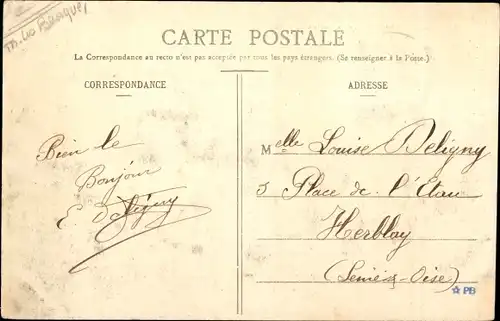 CARTE POSTALE
La Correspondance au recto n'est pas acceptée par tous les pays étrangers. (Se renseigner à la Poste.)
CORRESPONDANCE
ADRESSE
Bien le
Bonjour
E. Deligny
Melle Louise Deligny
5 Place de l'Étau
Herblay
(Seine & Oise)
PB